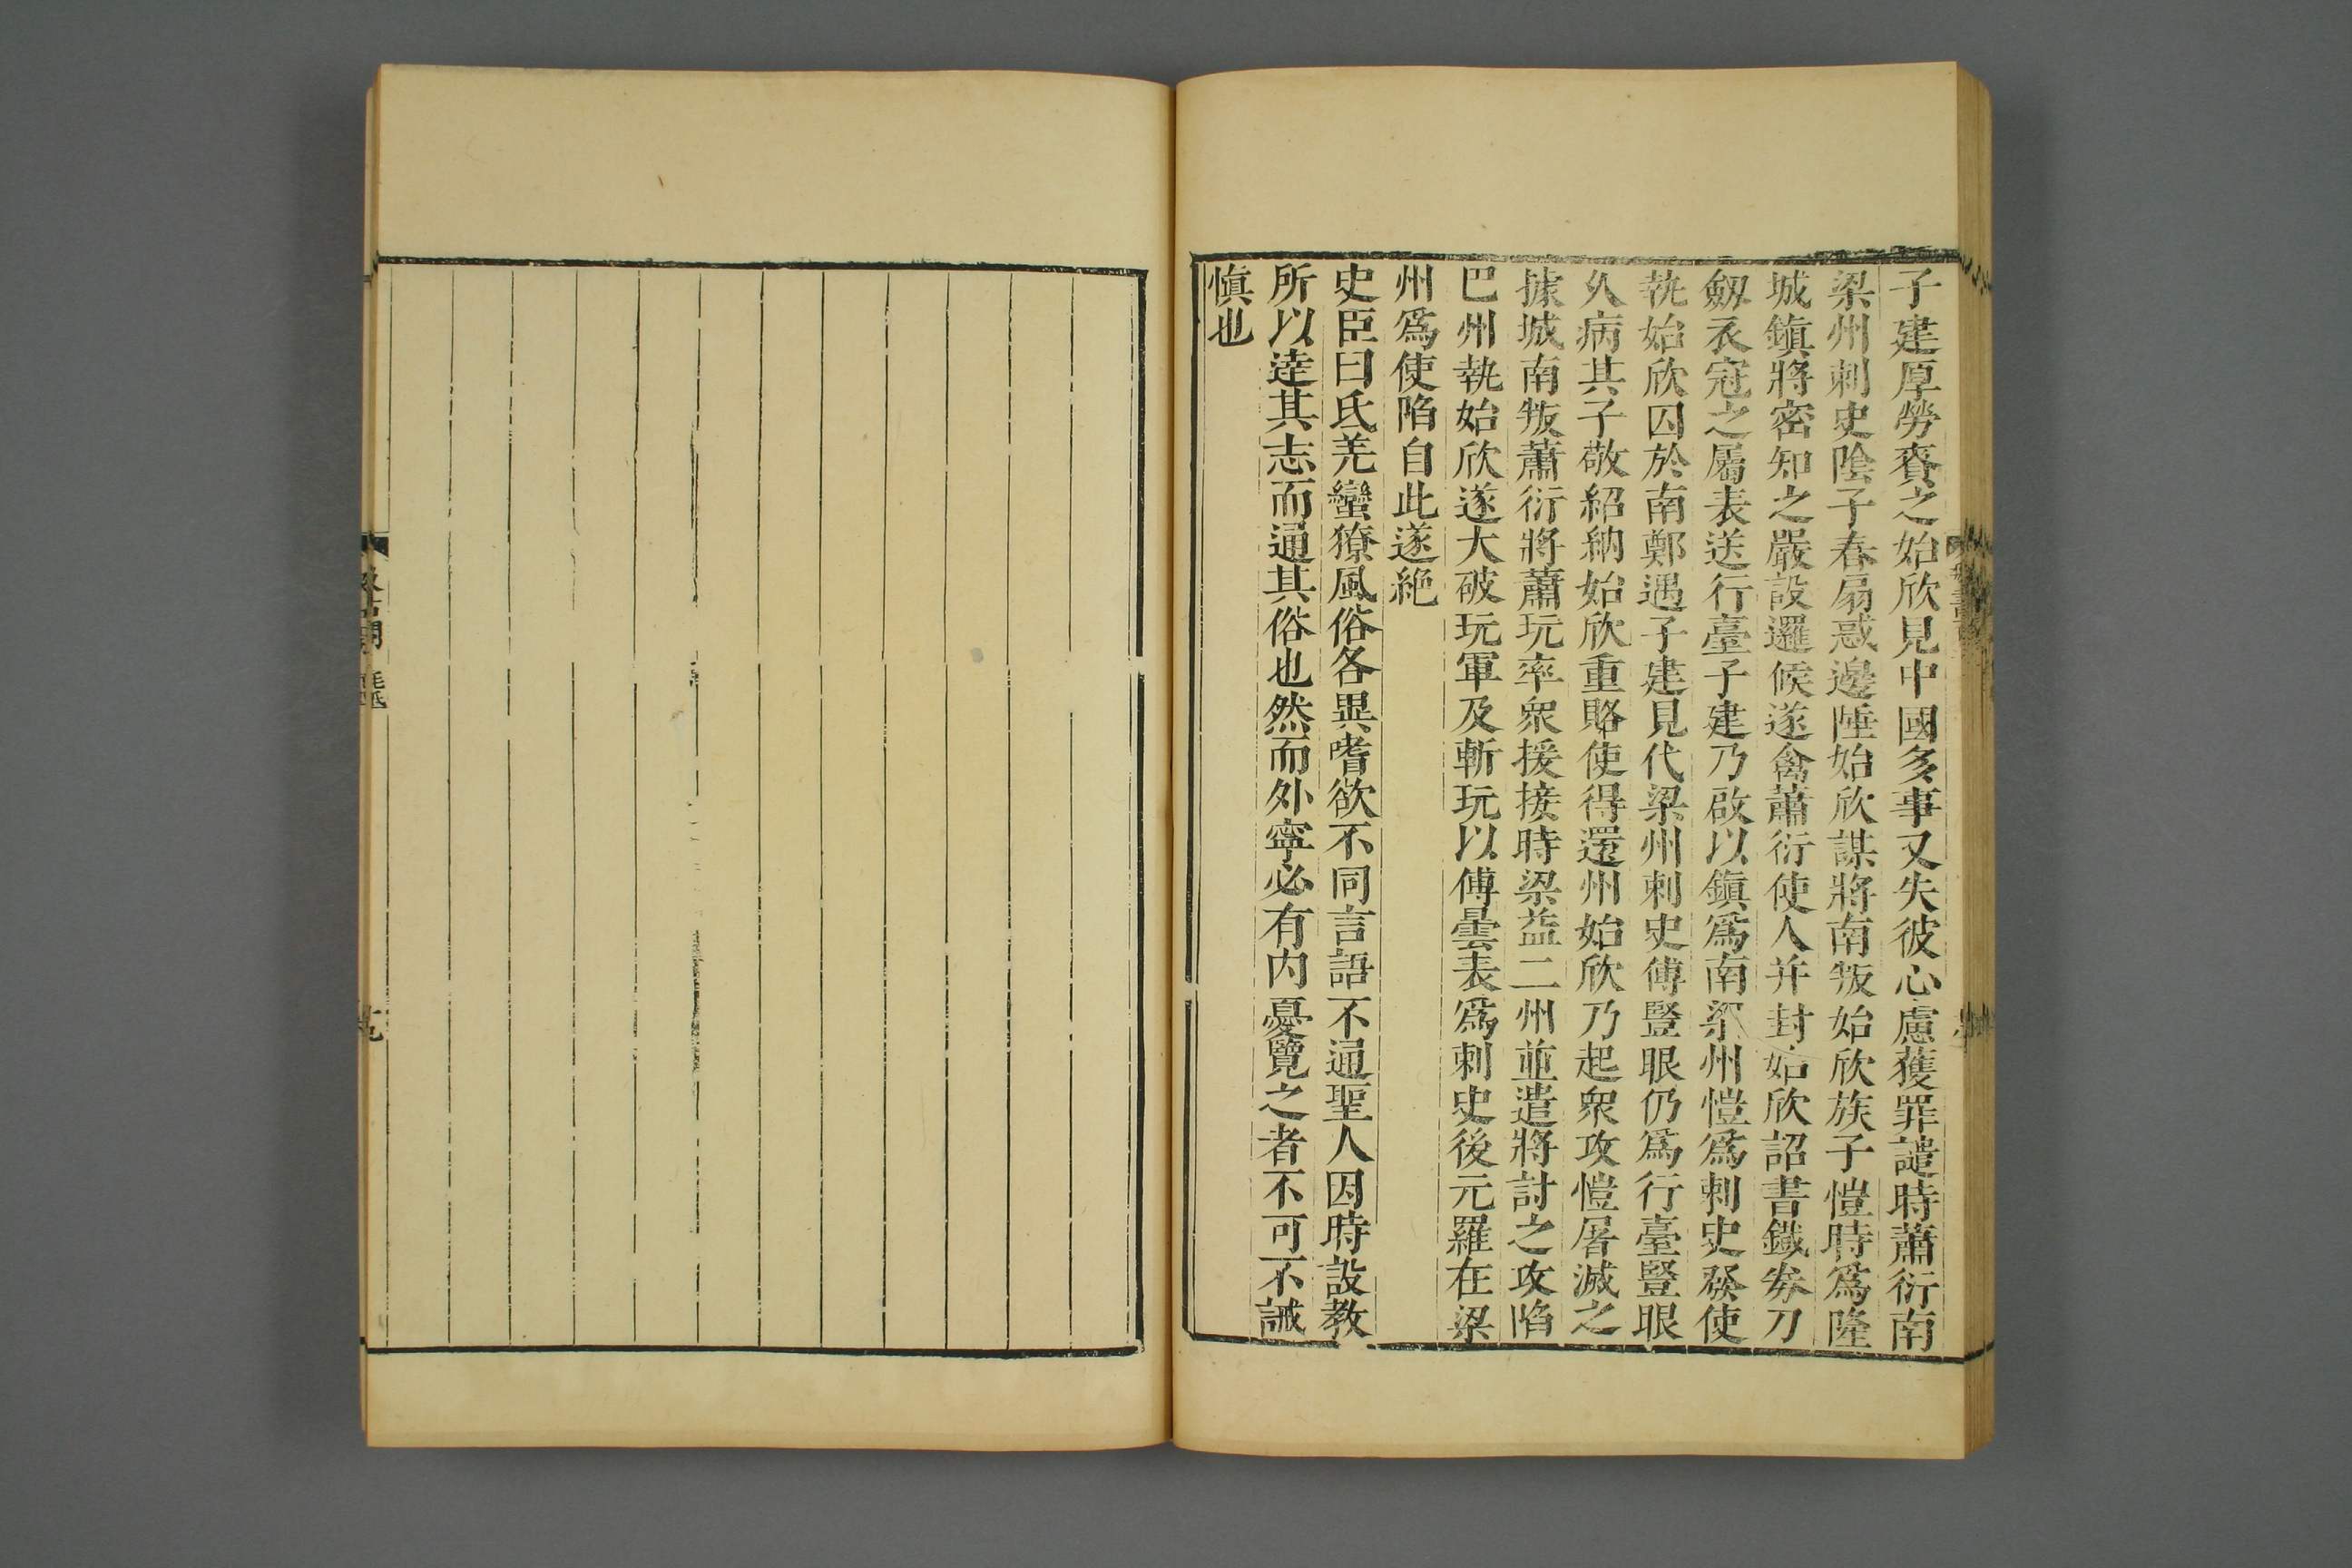 子建厚勞賚之始欣見中國多事又失彼心慮獲罪譴時蕭衍南
梁州刺史陰子春扇惑邊陲始欣謀將南叛始欣族子愷時爲隆
城鎭將密知之嚴設邏候遂禽蕭衍使人并封始欣詔書鐵券刀
劔衣冠之屬表送行臺子建乃啟以鎭爲南梁州愷爲刺史發使
執始欣囚於南鄭遇子建見代梁州刺史傅豎眼仍爲行臺豎眼
久病其子敬紹納始欣重賂使得還州始欣乃起衆攻愷屠滅之
據城南叛蕭衍將蕭玩率衆援接時梁益二州並遣將討之攻陷
巴州執始欣遂大破玩軍及斬玩以傅曇表爲刺史後元羅在梁
州爲使陷自此遂絶
史臣曰氐羌蠻獠風俗各異嗜欲不同言語不通聖人因時設教
所以逹其志而通其俗也然而外寧必有内憂覽之者不可不誡
慎也